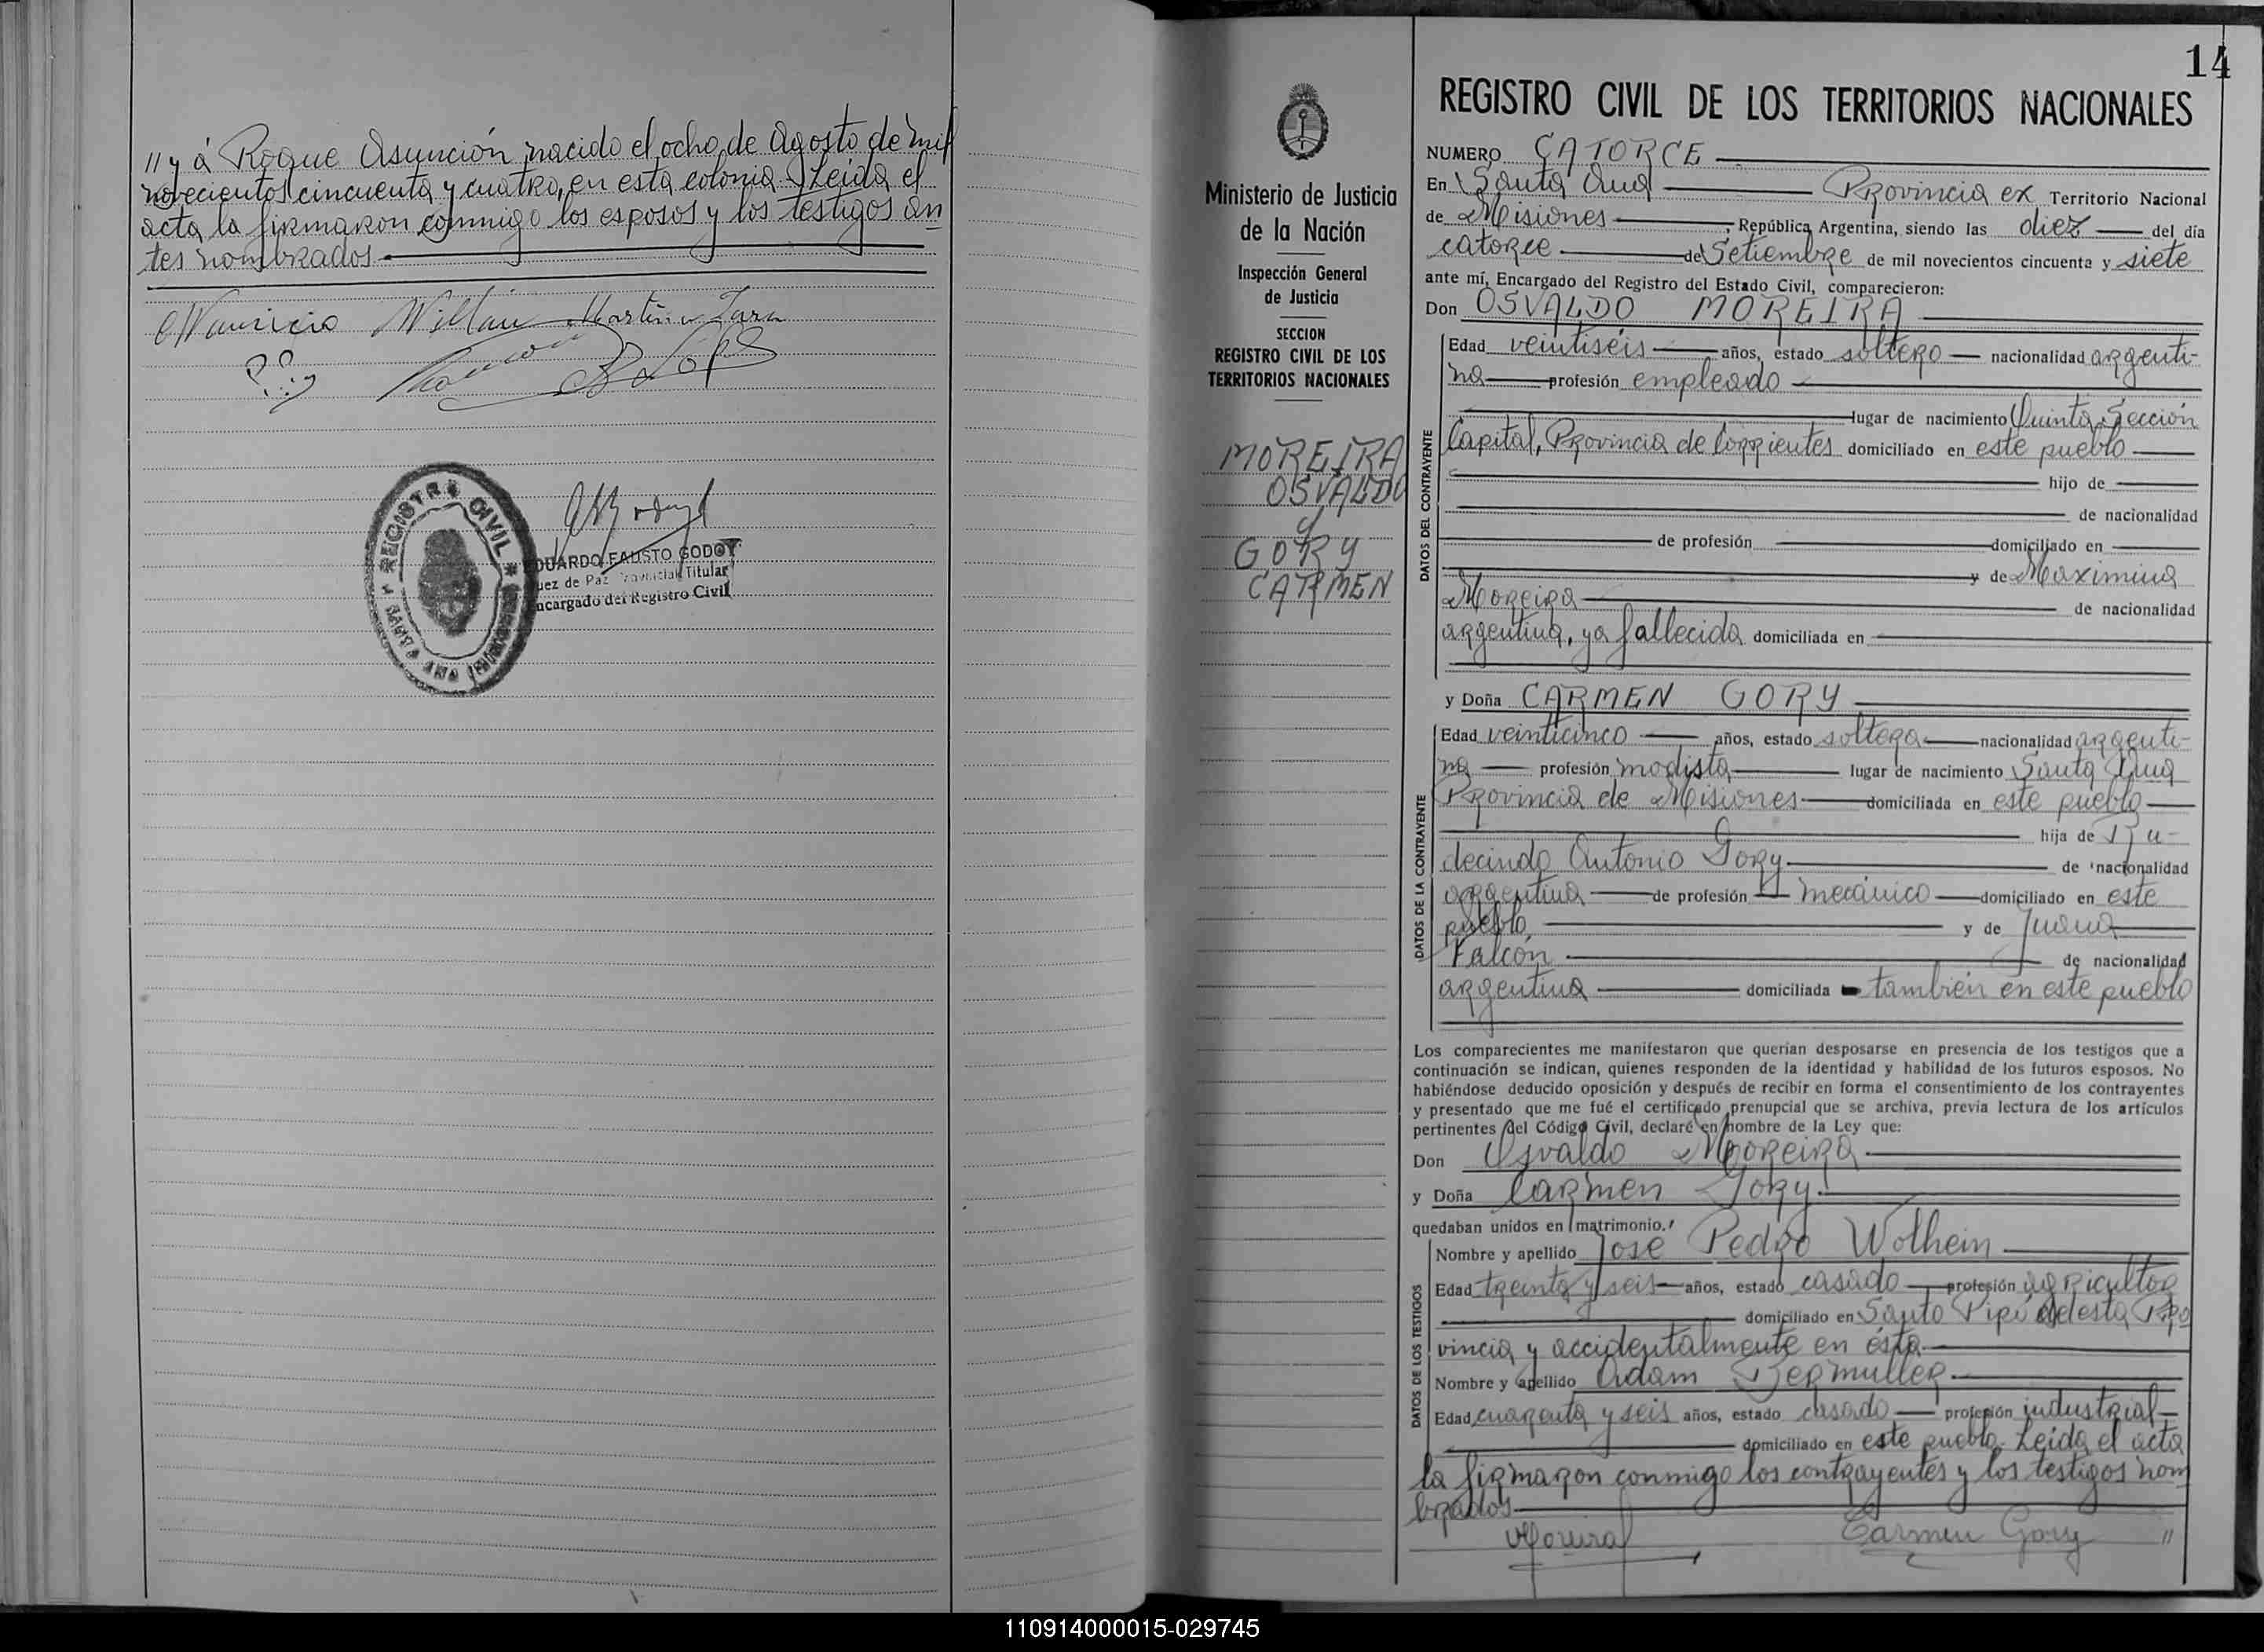 // y á Roque Asunción nacido el ocho de Agosto de mil
novecientos cincuenta y cuatro, en esta colonia. Leída el
acta la firmaron conmigo los esposos y los testigos an
tes nombrados
Mauricio Millán Martina Zara
REGISTRO CIVIL
SANTA ANA
DUARDO FAUSTO GODOY
uez de Paz Provincial Titular
ncargado del Registro Civil
14
Ministerio de Justicia
de la Nación
Inspección General
de Justicia
SECCION
REGISTRO CIVIL DE LOS
TERRITORIOS NACIONALES
MOREIRA
OSVALDO
y
GORY
CARMEN
REGISTRO CIVIL DE LOS TERRITORIOS NACIONALES
NUMERO CATORCE
En Santa Ana Provincia ex Territorio Nacional
de Misiones, República Argentina, siendo las diez del día
catorce de Setiembre de mil novecientos cincuenta y siete
ante mí, Encargado del Registro del Estado Civil, comparecieron:
Don OSVALDO MOREIRA
DATOS DEL CONTRAYENTE
Edad veintiseis años, estado soltero nacionalidad argenti-
na profesión empleado
lugar de nacimiento Quinta Sección
Capital, Provincia de Corrientes domiciliado en este pueblo
hijo de
de nacionalidad
de profesión domiciliado en
y de Maximina
Moreira de nacionalidad
argentina, ya fallecida domiciliada en
y Doña CARMEN GORY
DATOS DE LA CONTRAYENTE
Edad veinticinco años, estado soltera nacionalidad argenti-
na profesión modista lugar de nacimiento Santa Ana
Provincia de Misiones domiciliada en este pueblo
hija de Ru-
decindo Antonio Gory de nacionalidad
argentina de profesión mecánico domiciliado en este
pueblo y de Juana
Falcón de nacionalidad
argentina domiciliada también en este pueblo
Los comparecientes me manifestaron que querían desposarse en presencia de los testigos que a
continuación se indican, quienes responden de la identidad y habilidad de los futuros esposos. No
habiéndose deducido oposición y después de recibir en forma el consentimiento de los contrayentes
y presentado que me fué el certificado prenupcial que se archiva, previa lectura de los artículos
pertinentes del Código Civil, declaré en nombre de la Ley que:
Don Osvaldo Moreira
y Doña Carmen Gory
quedaban unidos en matrimonio.
DATOS DE LOS TESTIGOS
Nombre y apellido José Pedro Wolhein
Edad treinta y seis años, estado casado profesión agricultor
domiciliado en Santo Pipó de esta Pro
vincia y accidentalmente en ésta
Nombre y apellido Adam Bermuller
Edad cuarenta y seis años, estado casado profesión industrial
domiciliado en este pueblo. Leída el acta
la firmaron conmigo los contrayentes y los testigos nom
brados
Moreira Carmen Gory //
110914000015-029745